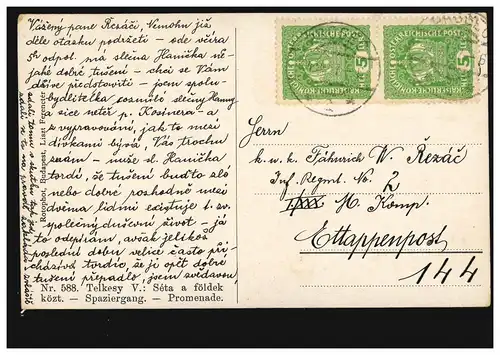 Vážený pane Řezáči, Nemohu již
déle otázku podržeti – ode včera
5h odpol. má slečna Hanička ně-
jaké dobré tušení – chci se Vám
dříve představiti – jsem spolu-
bydlitelka cozmilé slečny Hanny
a sice neteř p. Kosinera – a
z vypravování, jak to mezi
dívkami bývá, Vás trochu
znám – může sl. Hanička
tvrdí, že tušení buďto zlé
nebo dobré rozhodně mezi
dvěma lidmi existuje t. zv.
společný duševní život – já
to odpírám, avšak jelikož
poslední dobu velice často při-
cházívá tvrdíc, že ji opět dobré
tušení přepadlo, jsem zvědavou,
Rotophot, Budapest, Liszt Ferencz-tér
Nr. 588. Telkesy V.: Séta a földek
közt. — Spaziergang. — Promenade.
KAISERLICHE KÖNIGLICHE ÖSTERREICHISCHE POST
5
KAISERLICHE KÖNIGLICHE ÖSTERREICHISCHE POST
5
Herrn
k. u. k. Fähnrich W. Řezáč
Inf. Regmt. No. 2
M. Komp.
Ettappenpost
144